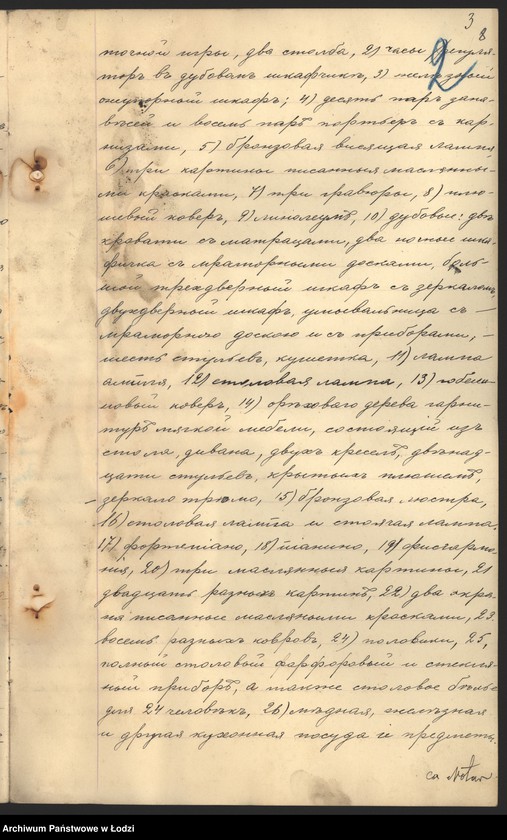 3
8
2
точной игры, два столба, 2) часы регуля-
торъ въ дубовомъ шкафчикѣ, 3) желѣзный
огнеупорный шкафъ; 4) десять паръ зана-
вѣсей и восемь паръ портьеръ съ кар-
низами, 5) бронзовая висящая лампа,
6) три картины писанныя маслянны-
ми красками, 7) три гравюры, 8) плю-
шевый коверъ, 9) линолеумъ, 10) дубовые: двѣ
кровати съ матрацами, два ночные шка-
фчика съ мраморными досками, боль-
шой трехдверный шкафъ съ зеркаломъ,
двухдверный шкафъ, умывальница съ —
мраморною доскою и съ приборами, —
шесть стульевъ, кушетка, 11) лампа
ампля, 12) столовая лампа, 13) гобели-
новый коверъ, 14) орѣховаго дерева гарни-
туръ мягкой мебели, состоящій изъ
стола, дивана, двухъ креселъ, двѣнад-
цати стульевъ, крытыхъ плюшемъ,
зеркало трюмо, 15) бронзовая люстра,
16) столовая лампа и стоячая лампа,
17) фортепіано, 18) піанино, 19) фисгармо-
нія, 20) три маслянныя картины, 21
двадцать разныхъ картинъ, 22) два экра-
на писанные масляными красками, 23.
восемь разныхъ ковровъ, 24) половики, 25,
полный столовый фарфоровый и стеклян-
ный приборъ, а также столовое бѣлье
для 24 человѣкъ, 26) мѣдная, желѣзная
и другая кухонная посуда и предметы.
Archiwum Państwowe w Łodzi